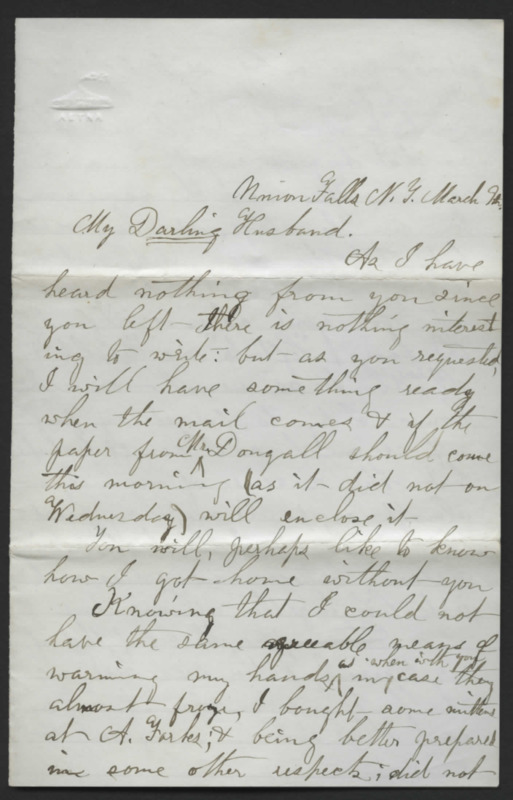 AETNA
Union Falls N. Y. March 9th.
My Darling Husband.
As I have
heard nothing from you since
you left there is nothing interest
ing to write: but as you requested,
I will have something ready
when the mail comes & if the
paper from Mr Dongall should come
this morning (as it did not on
Wednesday) will enclose it
You will, perhaps like to know
how I got home without you
Knowing that I could not
have the same agreeable means of
warming my hands, as when with you, in case they
almost froze, I bought some mittens
at A. Forks, & being better prepared
in some other respects; did not